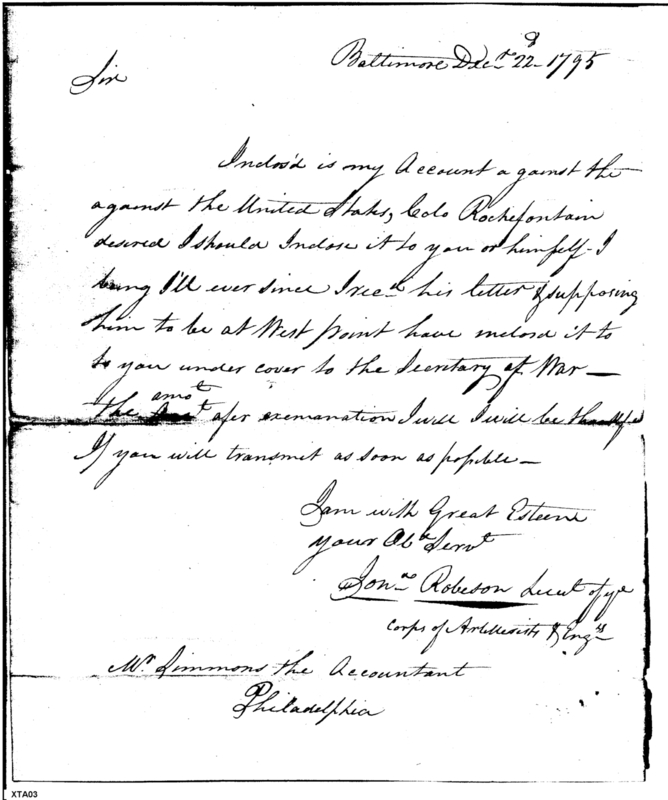 Baltimore Decr 22d 1795
Sir
Inclos'd is my Account against the
against the United States, Colo Rochefontain
desired I should Inclose it to you or himself - I
being I'll ever since I recd his letter & supposing
him to be at West Point have inclosd it to
to you under cover to the Secretary of War —
the amot after exemanation I will I will be thankful
If you will transmit as soon as possible —
I am with Great Esteem
your Obt Servt
Jons Robeson Lieut of ye
Corps of Artillerists & Engrs
Mr Simmons the Accountant
Philadelphia
XTA03